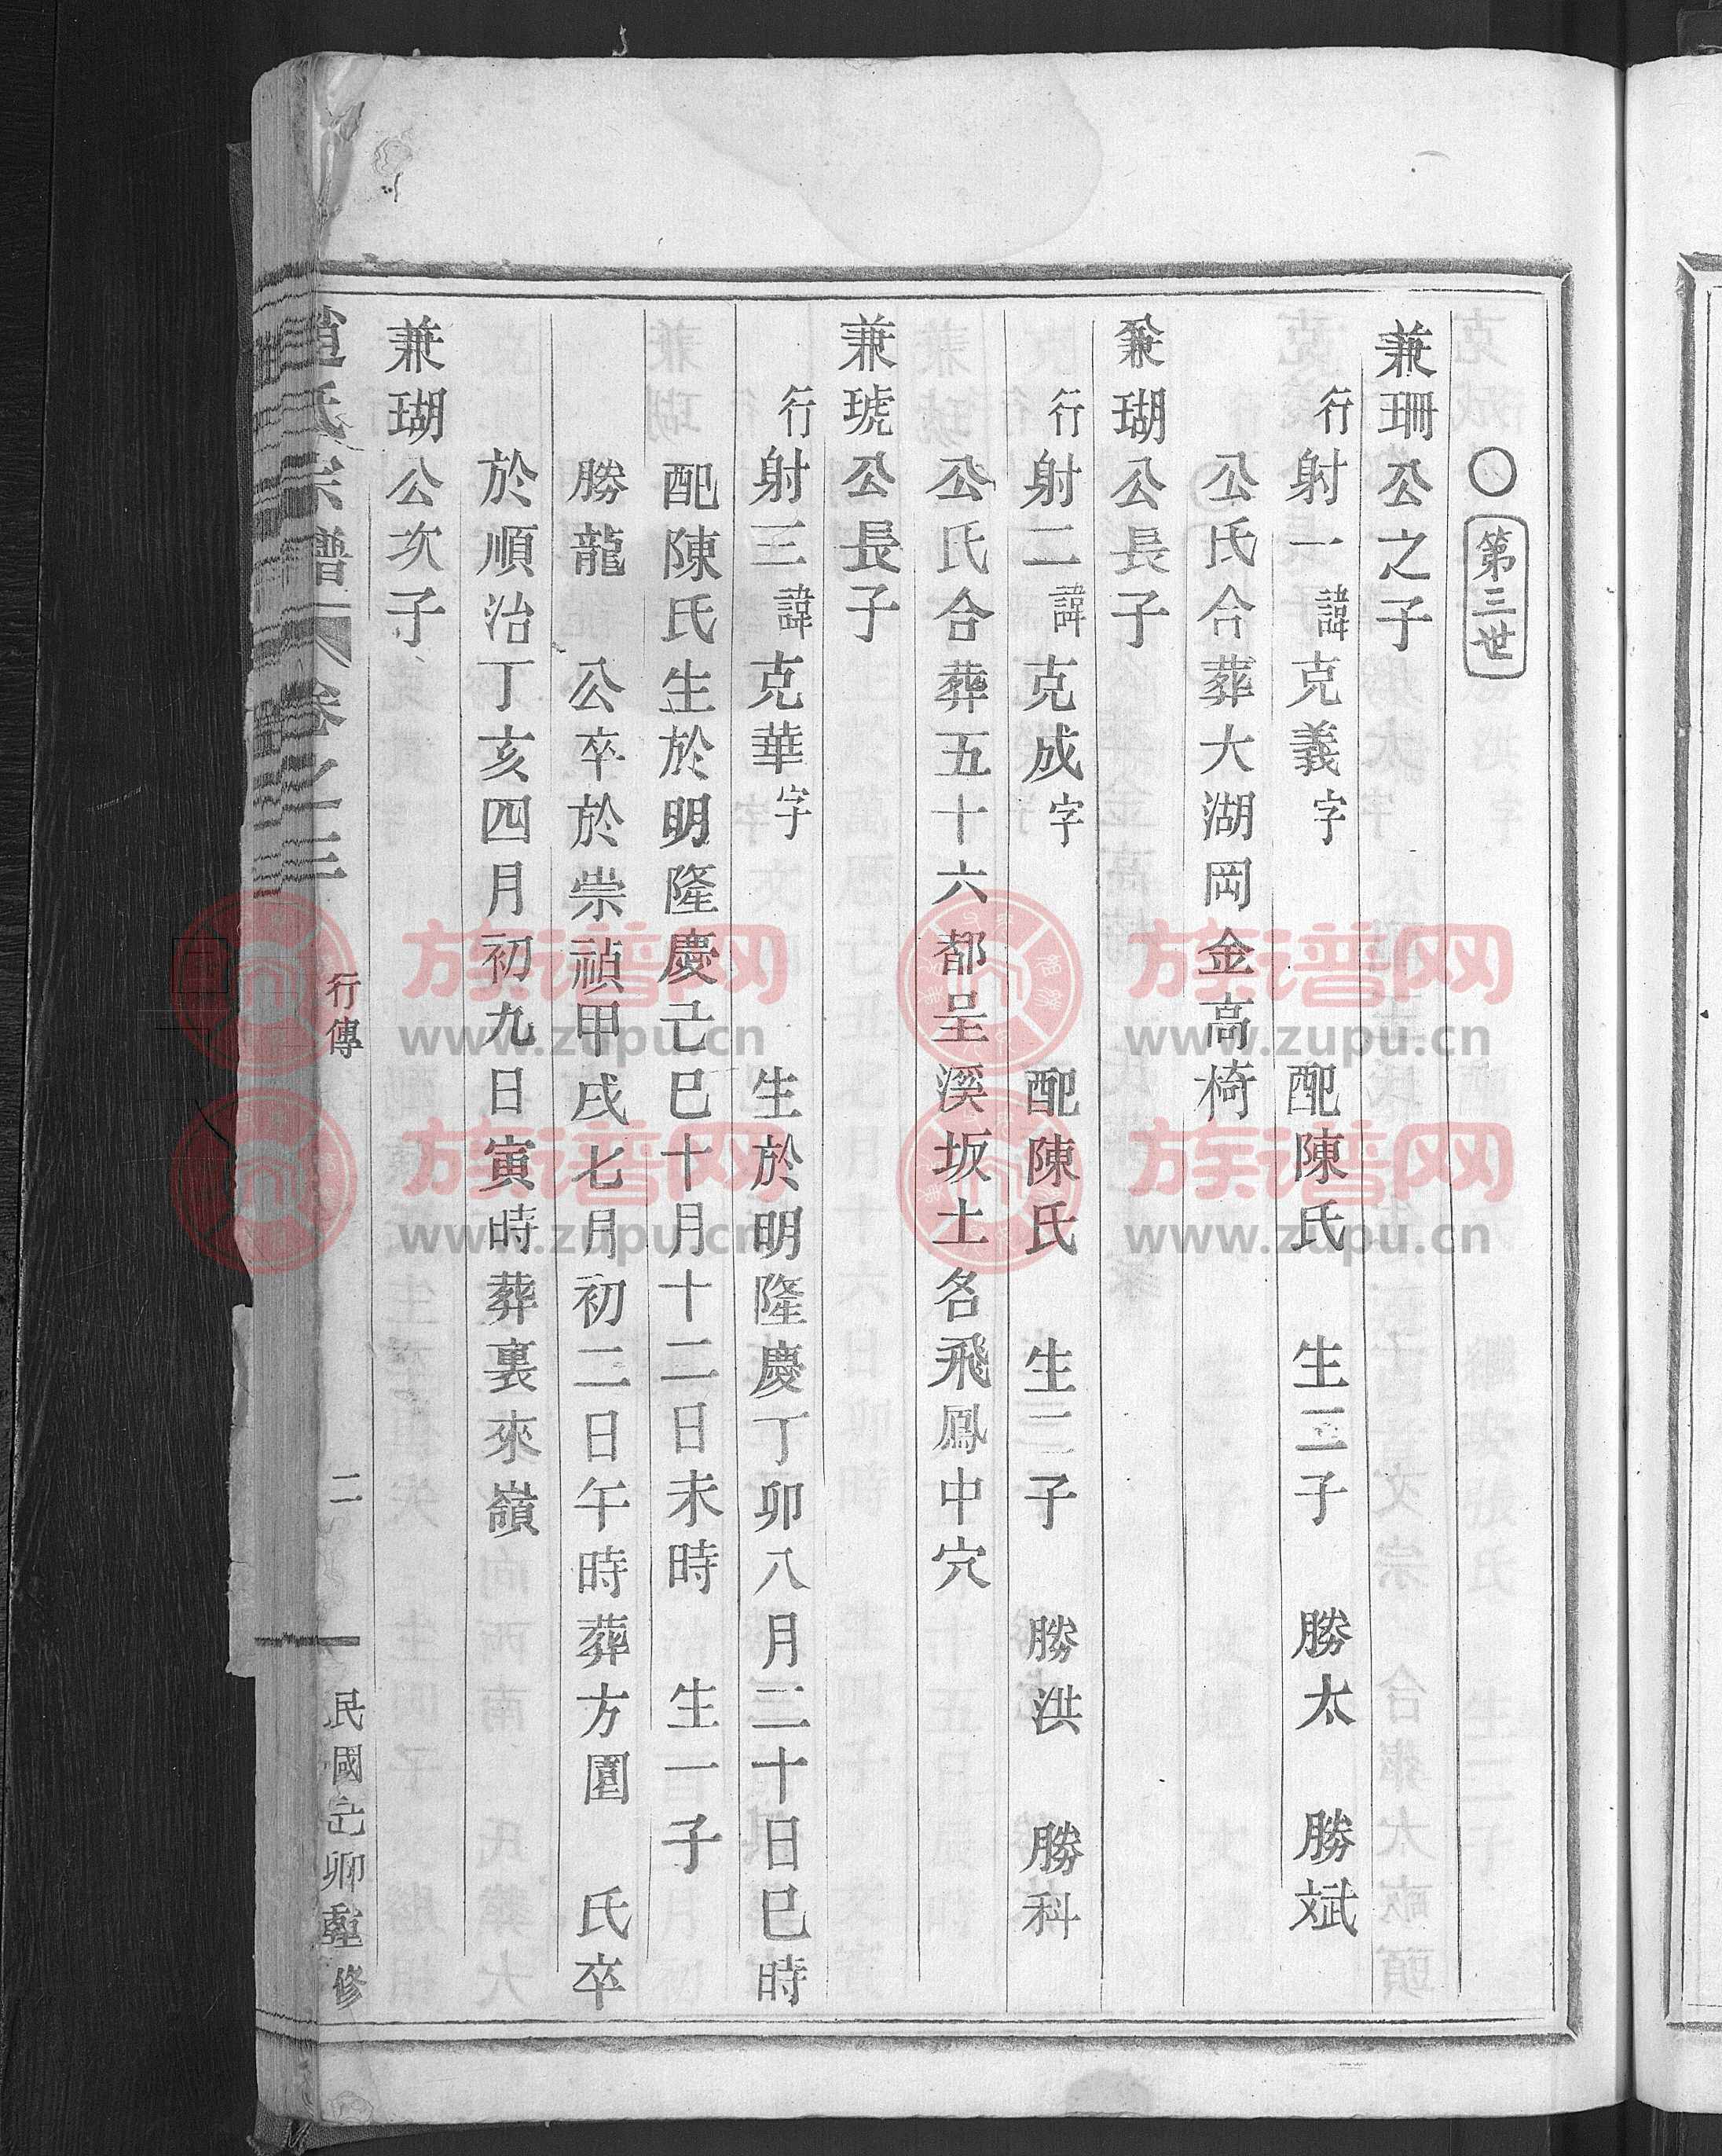 ○第三世
兼珊公之子
行射一諱克義字 配陳氏 生三子 勝太 勝斌
公氏合葬大湖岡金高椅
兼瑚公長子
行射二諱克成字 配陳氏 生二子 勝洪 勝科
公氏合葬五十六都呈溪坂土名飛鳳中穴
兼琥公長子
行射三諱克華字 生於明隆慶丁卯八月二十日巳時
配陳氏生於明隆慶己巳十月十二日未時 生一子
勝龍 公卒於崇禎甲戌七月初二日午時葬方園 氏卒
於順治丁亥四月初九日寅時葬裏來嶺
兼瑚公次子
趙氏宗譜 卷之三 行傳 二 民國己卯重修
族谱网
www.zupu.cn
族谱网
www.zupu.cn
族谱网
www.zupu.cn
族谱网
www.zupu.cn